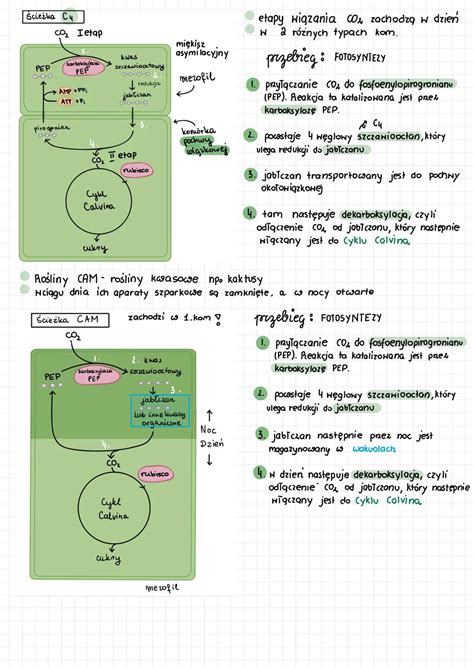 Ścieżka C4
CO2 I etap
miękisz
asymilacyjny
PEP
karboksylaza
PEP
kwas
szczawiooctowy
2. redukcja
mezofil
ATP
ATP
jabłczan
1.
3.
pirogronian
komórka
pochwy
wiązkowej
4.
CO2 II etap
rubisco
Cykl
Calvina
cukry
etapy wiązania CO2 zachodzą w dzień
w 2 różnych typach kom.
przebieg: FOTOSYNTEZY
1. przyłączanie CO2 do fosfoenylopirogronianu
(PEP). Reakcja ta katalizowana jest przez
karboksylazę PEP.
C4
2. powstaje 4 węglowy szczawiooctan, który
ulega redukcji do jabłczanu
3. jabłczan transportowany jest do pochwy
okołowiązkowej
4. tam następuje dekarboksylacja, czyli
odłączenie CO2 od jabłczanu, który następnie
włączany jest do Cyklu Calvina.
Rośliny CAM - rośliny kwasowe np. kaktusy
Wciągu dnia ich aparaty szparkowe są zamknięte, a w nocy otwarte
Ścieżka CAM
zachodzi w 1. kom !
CO2
1.
2. kwas
PEP
karboksylaza
PEP
szczawiooctowy
3.
jabłczan
lub inne kwasy
organiczne
Noc
Dzień
4.
CO2
rubisco
Cykl
Calvina
cukry
mezofil
przebieg: FOTOSYNTEZY
1. przyłączanie CO2 do fosfoenylopirogronianu
(PEP). Reakcja ta katalizowana jest przez
karboksylazę PEP.
2. powstaje 4 węglowy szczawiooctan, który
ulega redukcji do jabłczanu
3. jabłczan następnie przez noc jest
magazynowany w wakuolach
4. W dzień następuje dekarboksylacja, czyli
odłączenie CO2 od jabłczanu, który następnie
włączany jest do Cyklu Calvina.